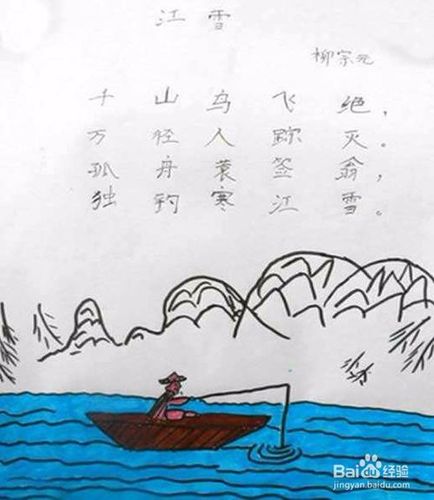 江雪
柳宗元
千山鸟飞绝，
万径人踪灭。
孤舟蓑签翁，
独钓寒江雪。
Baidu经验
jingyan.baidu.com